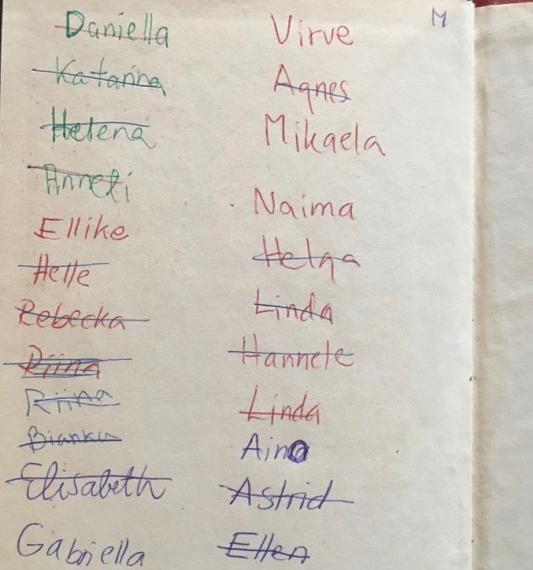 M
Daniella
Katarina
Helena
Anneti
Ellike
Helle
Rebecka
Riina
Riina
Bianka
Elisabeth
Gabriella
Virve
Agnes
Mikaela
Naima
Helga
Linda
Hannele
Linda
Aino
Astrid
Ellen